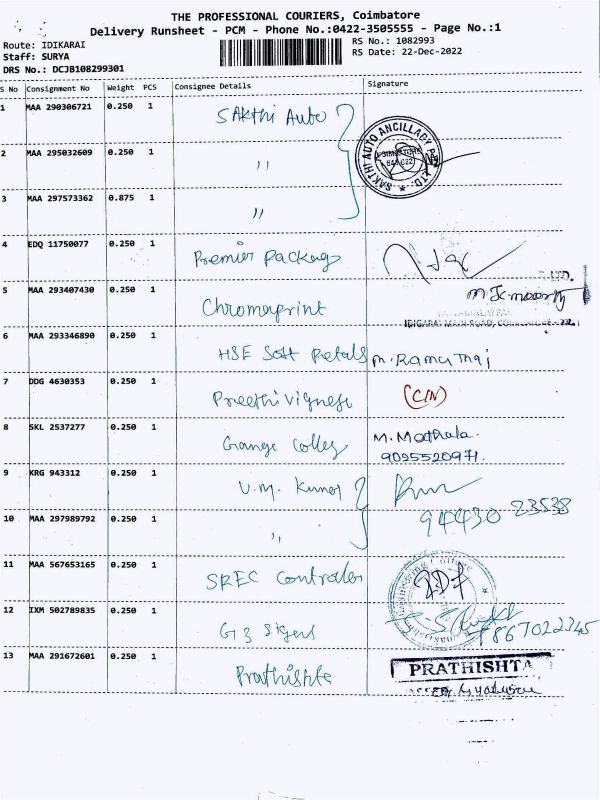 THE PROFESSIONAL COURIERS, Coimbatore
Delivery Runsheet - PCM - Phone No.:0422-3505555 - Page No.:1
Route: IDIKARAI RS No.: 1082993
Staff: SURYA RS Date: 22-Dec-2022
DRS No.: DCJB108299301
S No Consignment No Weight PCS Consignee Details Signature
1 MAA 290306721 0.250 1 SAKthi Auto
2 MAA 295032609 0.250 1 "
SAKTHI AUTO ANCILLARY P LTD.
3 MAA 297573362 0.875 1 "
4 EDQ 11750077 0.250 1 Premier Packags
LTD.
5 MAA 293407430 0.250 1 Chromaprint
6 MAA 293346890 0.250 1 HSE Soft Petals M. Ramu Thaj
7 DDG 4630353 0.250 1 Preethi vignesh (C/N)
8 SKL 2537277 0.250 1 Grange Colleg M. Mathala.
9095520971.
9 KRG 943312 0.250 1 V.M. Kumar
94430 23538
10 MAA 297989792 0.250 1 "
11 MAA 567653165 0.250 1 SREC Controller
12 IXM 502789835 0.250 1 G 3
8867022345
13 MAA 291672601 0.250 1 Prathishta PRATHISHTA